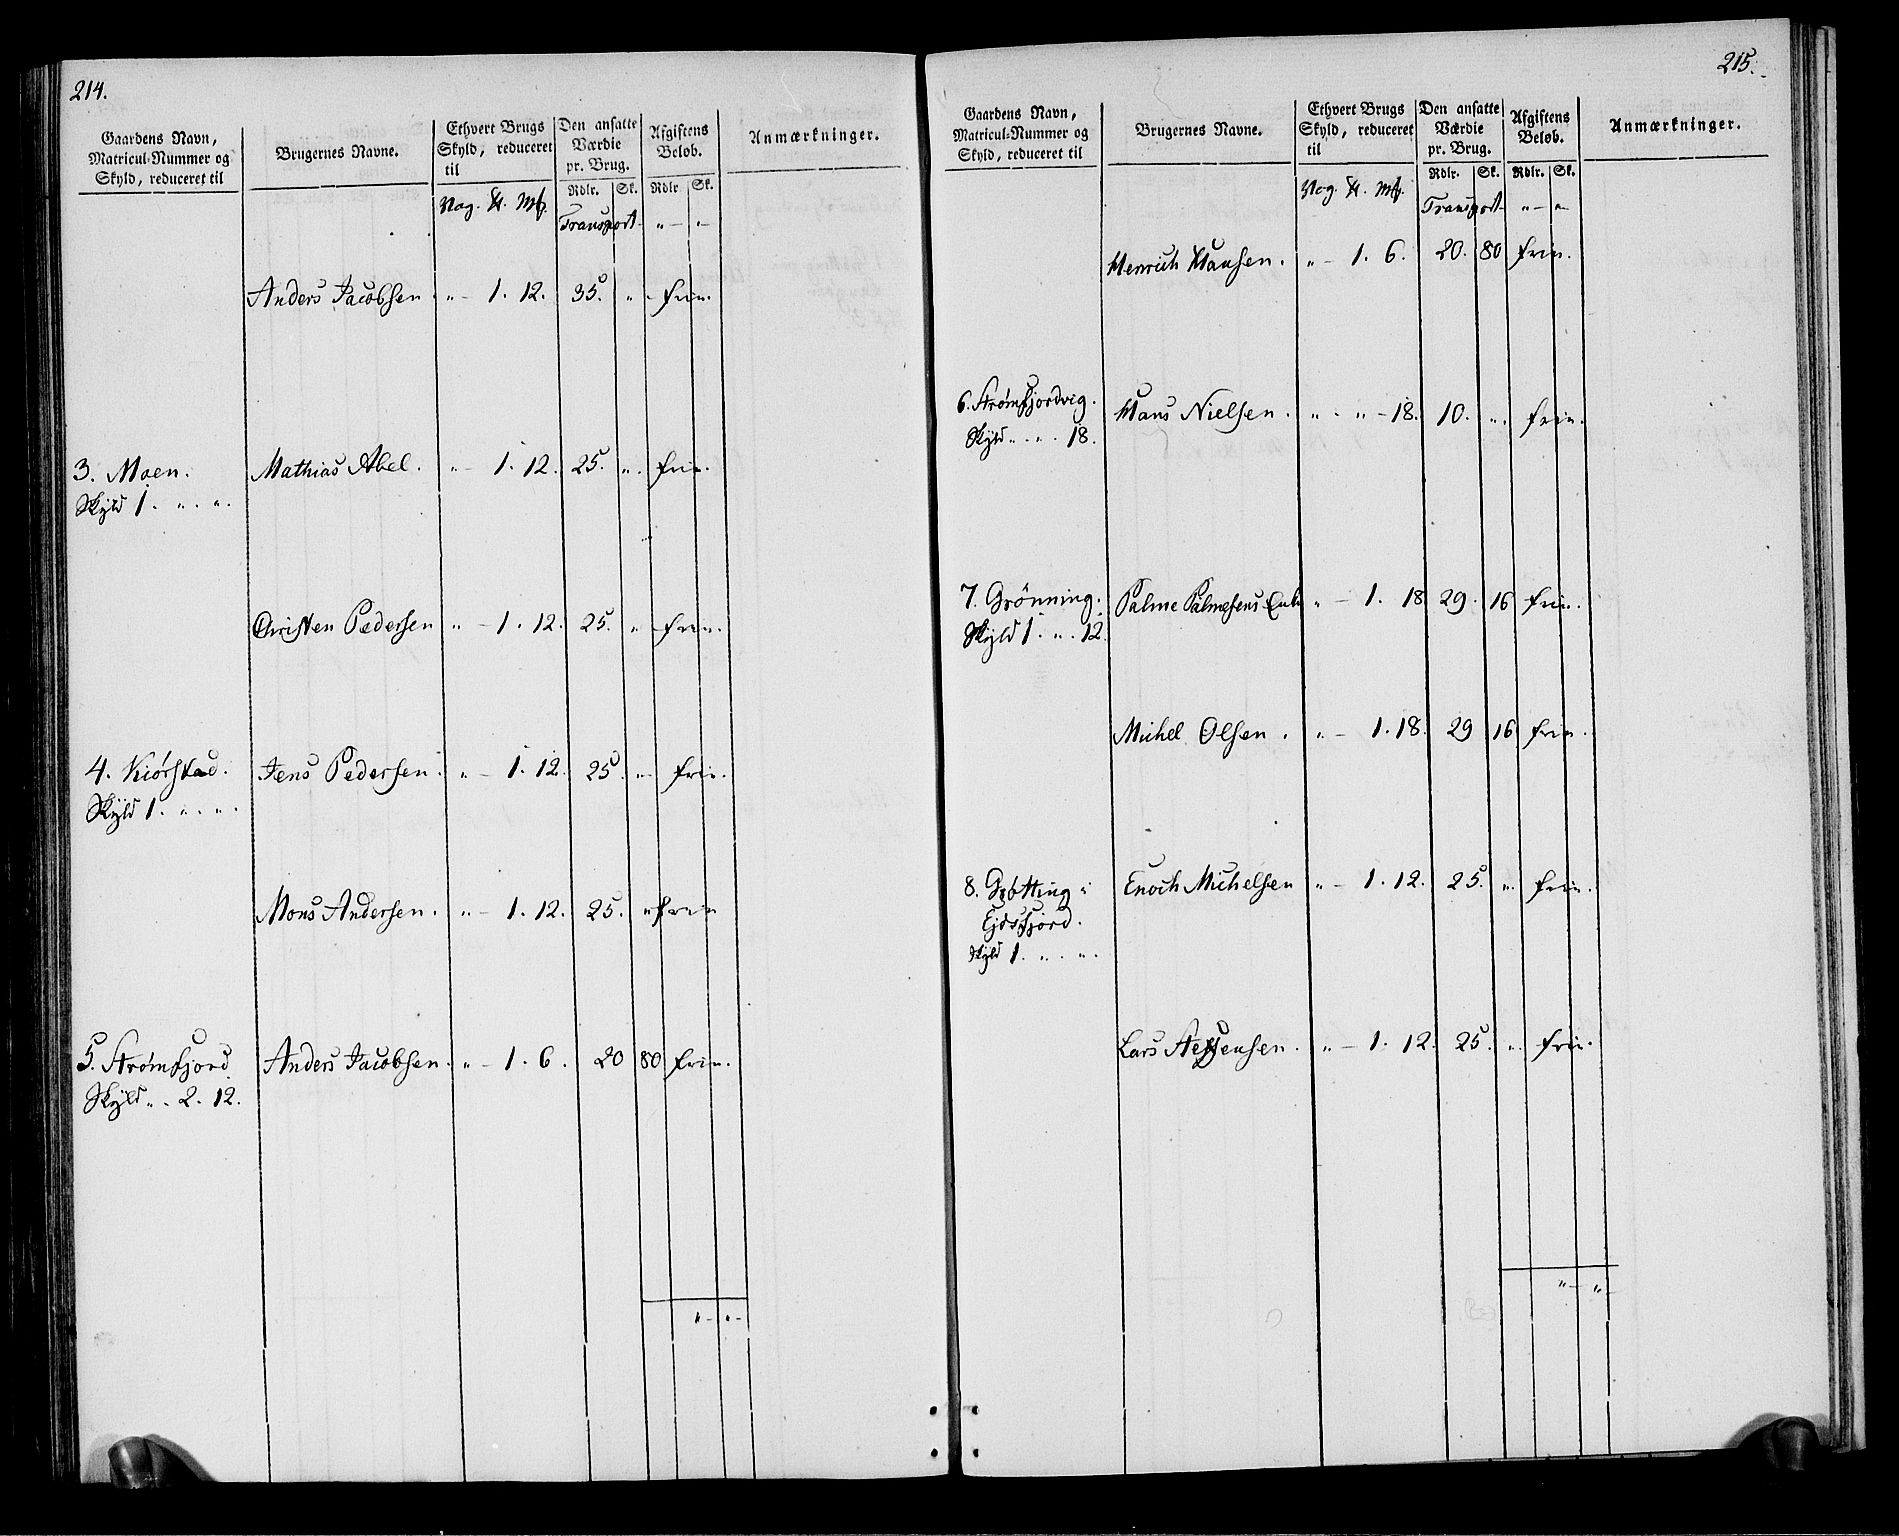 214.
Gaardens Navn, Matricul-Nummer og Skyld, reduceret til
Brugernes Navne.
Ethvert Brugs Skyld, reduceret til
Den ansatte Værdie pr. Brug.
Afgiftens Beløb.
Anmærkninger.
Rdlr. Sk. Rdlr Sk.
Vog. ℔. Mk.
Transport - „ - „ -
Anders Jacobsen. „ - 1. 12. 35. „ - frie.
3. Moen. Mathias Abel. „ - 1. 12. 25. „. frie.
Skyld 1. „. „.
Christen Pedersen „ - 1. 12. 25. „ - frie.
4. Kiørstad. Jens Pedersen. „ - 1. 12. 25. „ - frie.
Skyld 1. „. „.
Mons Andersen. „ - 1. 12. 25. „ frie
5. Strømfjord. Anders Jacobsen. „ - 1. 6. 20 80 frie.
Skyld „. 2. 12.
„ - „ -
215.
Gaardens Navn, Matricul-Nummer og Skyld, reduceret til
Brugernes Navne.
Ethvert Brugs Skyld, reduceret til
Den ansatte Værdie pr. Brug.
Afgiftens Beløb.
Anmærkninger.
Rdlr. Sk. Rdlr. Sk.
Vog. ℔. Mk.
Transport - „ - „ -
Henrich Hansen. „ - 1. 6. 20. 80 frie.
6. Strømfjordvig. Hans Nielsen. „ - „ - 18. 10. „. frie.
Skyld „. „. 18.
7. Grönning. Palme Palmesens Enke „ - 1. 18 29. 16 frie.
Skyld 1. „. 12.
Michel Olsen. „ - 1. 18. 29 16 frie.
8. Grøtting i Enoch Michelsen „ - 1. 12. 25. „. frie.
Ejdsfjord.
Skyld 1. „. „.
Lars Steffensen. „ - 1. 12. 25. „. frie.
„ - „ -